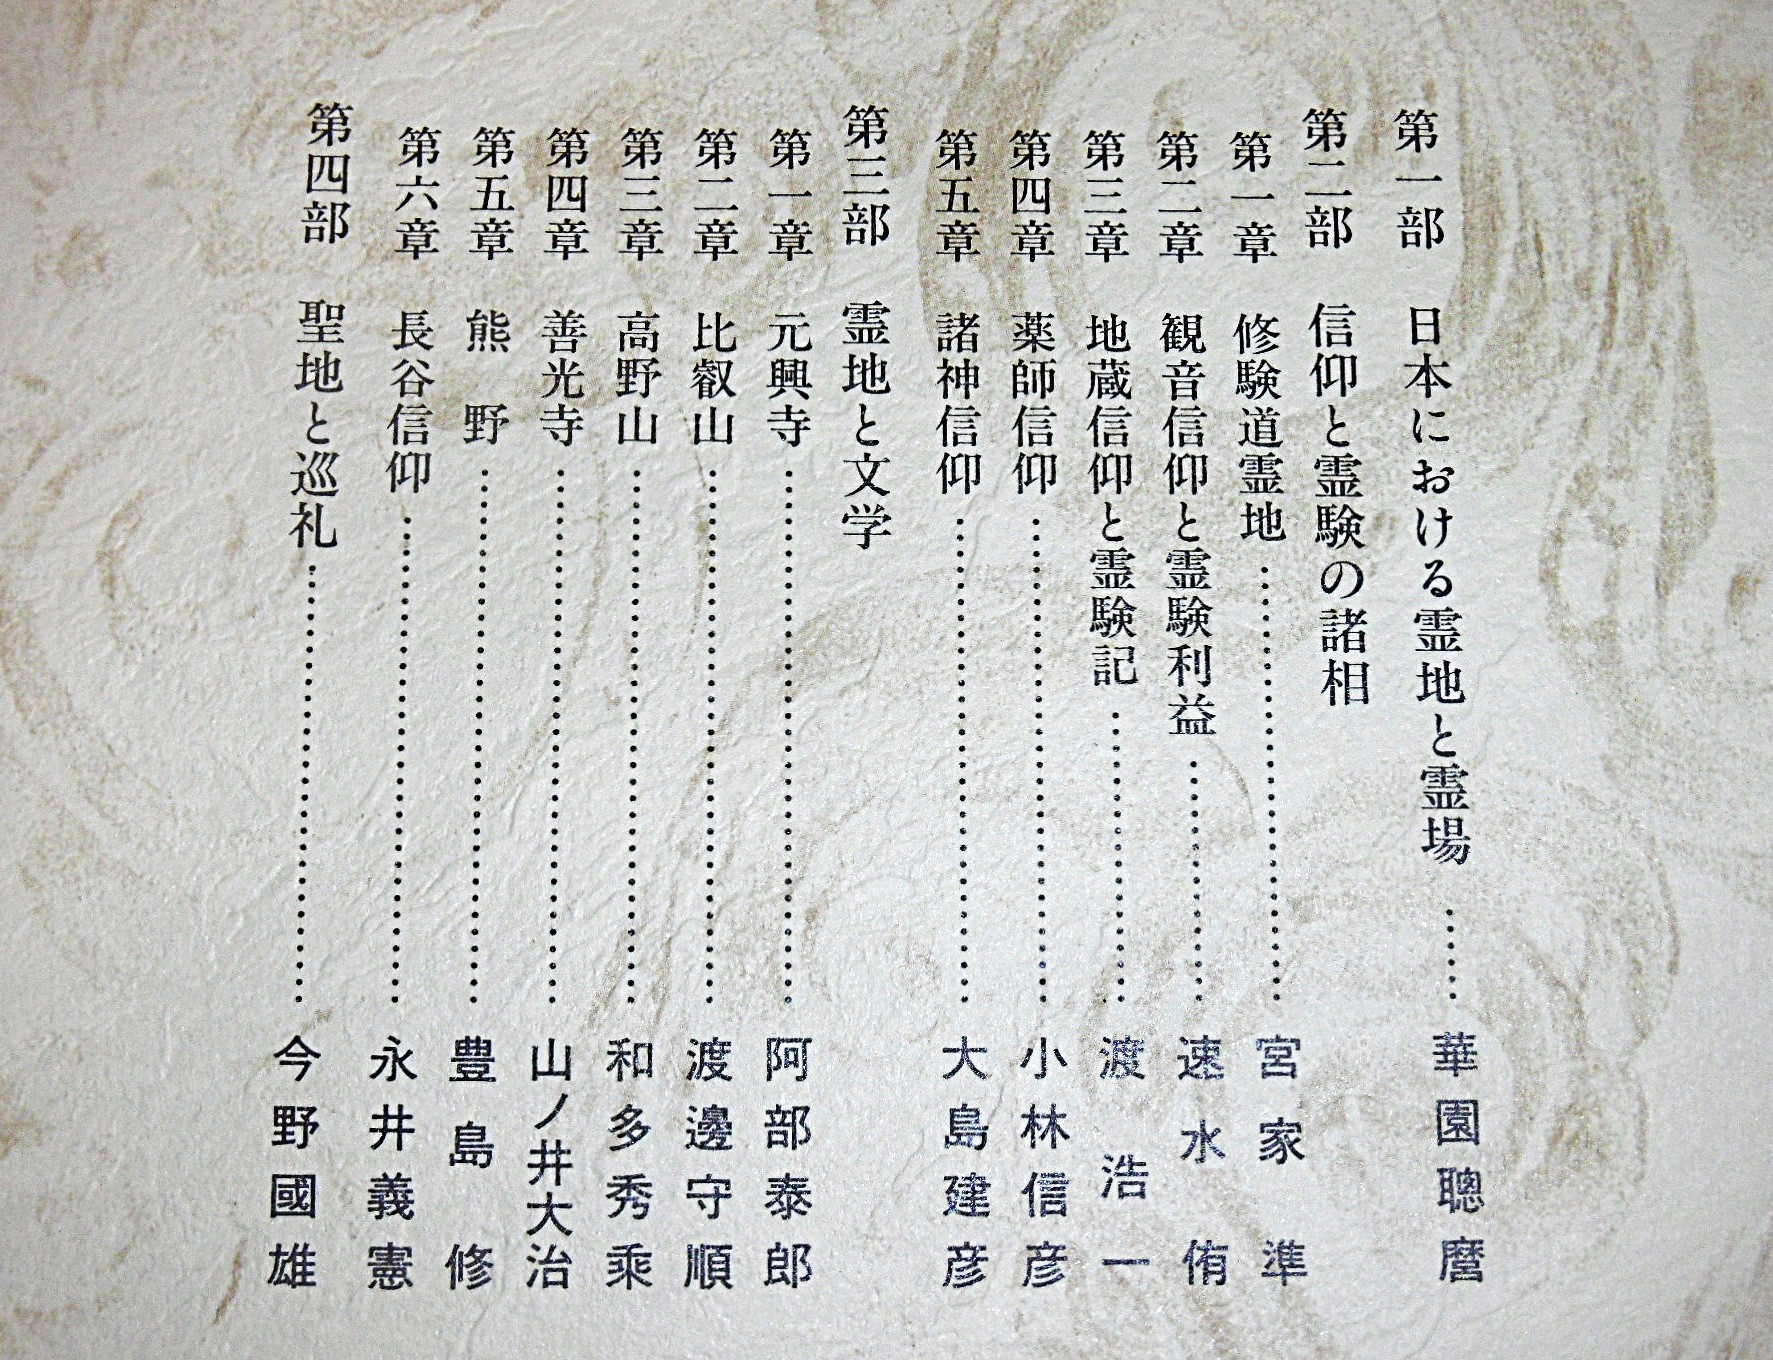 第一部 日本における霊地と霊場……華園聰麿
第二部 信仰と霊験の諸相
第一章 修験道霊地……宮家準
第二章 観音信仰と霊験利益……速水侑
第三章 地蔵信仰と霊験記……渡浩一
第四章 薬師信仰……小林信彦
第五章 諸神信仰……大島建彦
第三部 霊地と文学
第一章 元興寺……阿部泰郎
第二章 比叡山……渡邊守順
第三章 高野山……和多秀乘
第四章 善光寺……山ノ井大治
第五章 熊野……豊島修
第六章 長谷信仰……永井義憲
第四部 聖地と巡礼……今野國雄